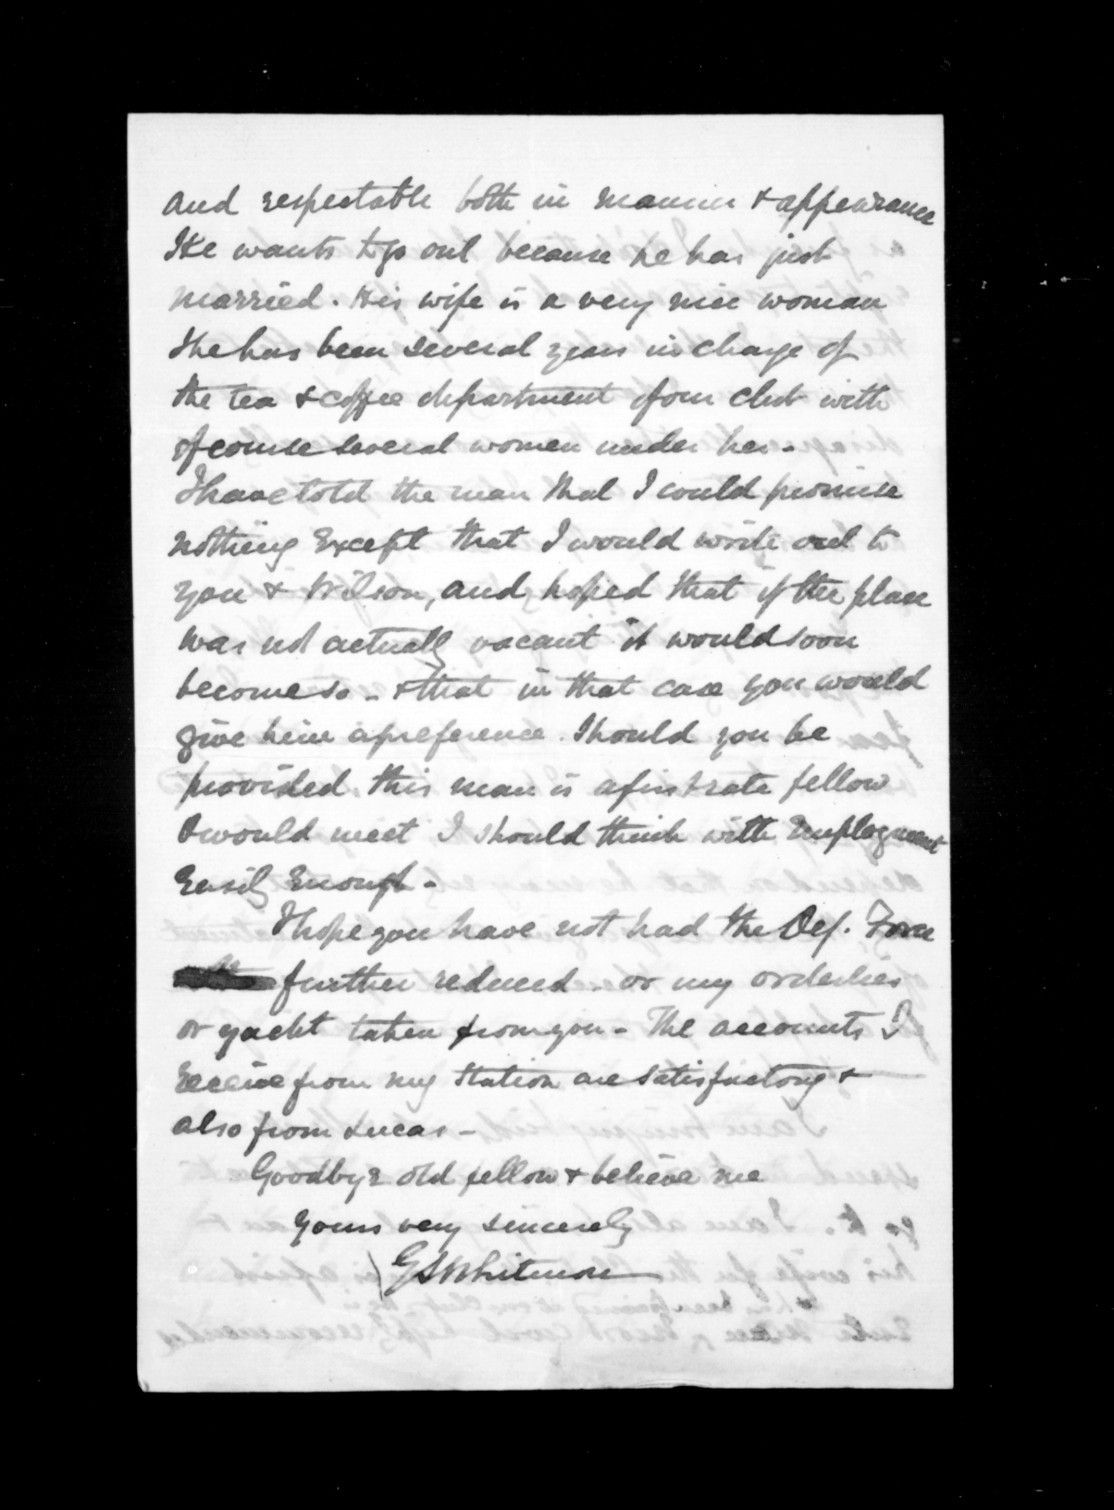 and respectable both in manner & appearance
He wants to go out because he has just
married. His wife is a very nice woman
She has been several years in charge of
the tea & coffee department of our club with
of course several women under her -
I have told the man that I could promise
nothing except that I would write out to
you & Wilson, and hoped that if the place
was not actually vacant it would soon
become so - & that in that case you would
give him a preference. Should you be
provided this man is a first rate fellow
& would meet I should think with employment
easily enough -
I hope you have not had the Def. Force
further reduced - or my orderlies
or yacht taken from you - The accounts I
receive from my station are satisfactory &
also from Lucas -
Goodbye old fellow & believe me
Yours very sincerely
GS Whitmore